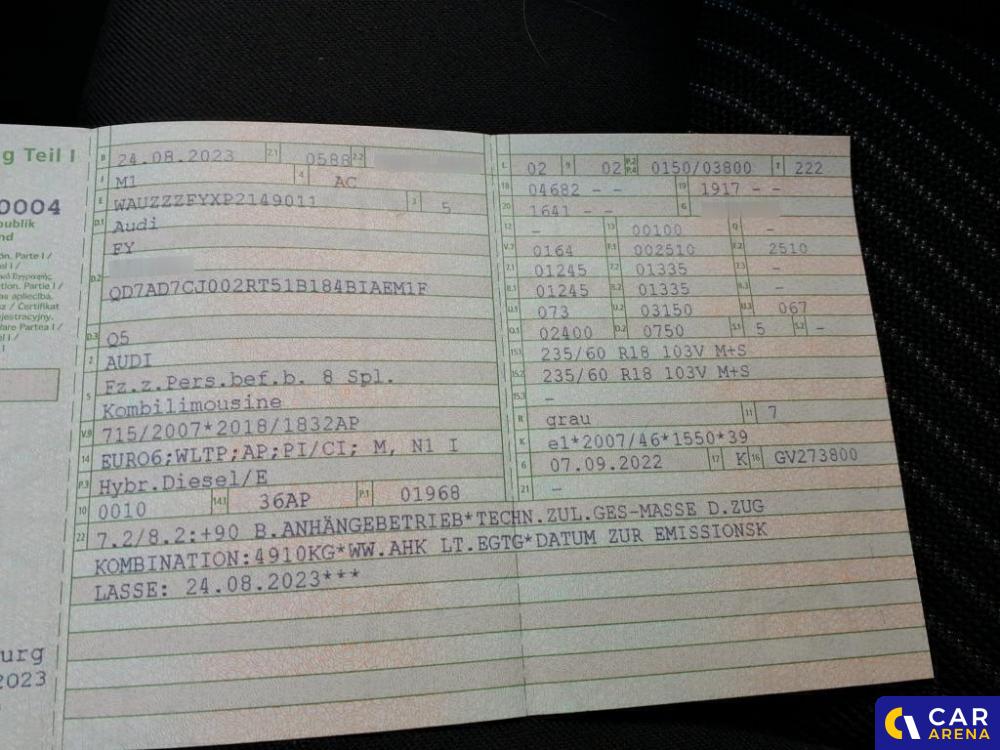 g Teil I
0004
publik
nd
on. Parte I /
el I /
tion. Partie I /
as apliecība.
sz / Certifikat
ejestracyjny.
lare Partea I /
el I /
urg
2023
B 24.08.2023 2.1 0588 2.2
J M1 4 AC
E WAUZZZFYXP2149011 3 5
D.1 Audi
FY
D.2
QD7AD7CJ002RT51B184BIAEM1F
D.3 Q5
2 AUDI
5 Fz.z.Pers.bef.b. 8 Spl.
Kombilimousine
V.9 715/2007*2018/1832AP
14 EURO6;WLTP;AP;PI/CI; M, N1 I
P.3 Hybr.Diesel/E
10 0010 14.1 36AP P.1 01968
22 7.2/8.2:+90 B.ANHÄNGEBETRIEB*TECHN.ZUL.GES-MASSE D.ZUG
KOMBINATION:4910KG*WW.AHK LT.EGTG*DATUM ZUR EMISSIONSK
LASSE: 24.08.2023***
L 02 9 02 P.2 P.4 0150/03800 T 222
18 04682 - - 19 1917 - -
20 1641 - - G
12 - 13 00100 Q -
V.7 0164 F.1 002510 F.2 2510
7.1 01245 7.2 01335 7.3 -
8.1 01245 8.2 01335 8.3 -
U.1 073 U.2 03150 U.3 067
O.1 02400 O.2 0750 S.1 5 S.2 -
15.1 235/60 R18 103V M+S
15.2 235/60 R18 103V M+S
15.3 -
R grau 11 7
K e1*2007/46*1550*39
6 07.09.2022 17 K 16 GV273800
21 -
CAR
ARENA